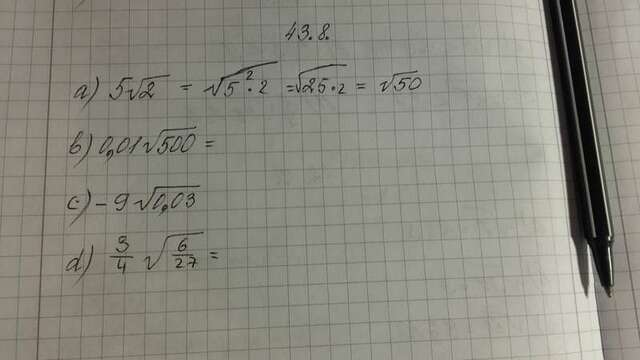 43.8.
a) 5√2 = √5² · 2 = √25 · 2 = √50
b) 0,01√500 =
c) -9√0,03
d) 3/4 √6/27 =